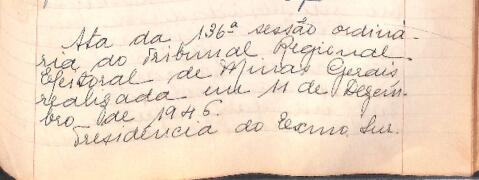 Ata da 136ª sessão ordiná-
ria do Tribunal Regional
Eleitoral de Minas Gerais,
realizada em 11 de Dezem-
bro de 1946.
Presidência do Exmo. Snr.